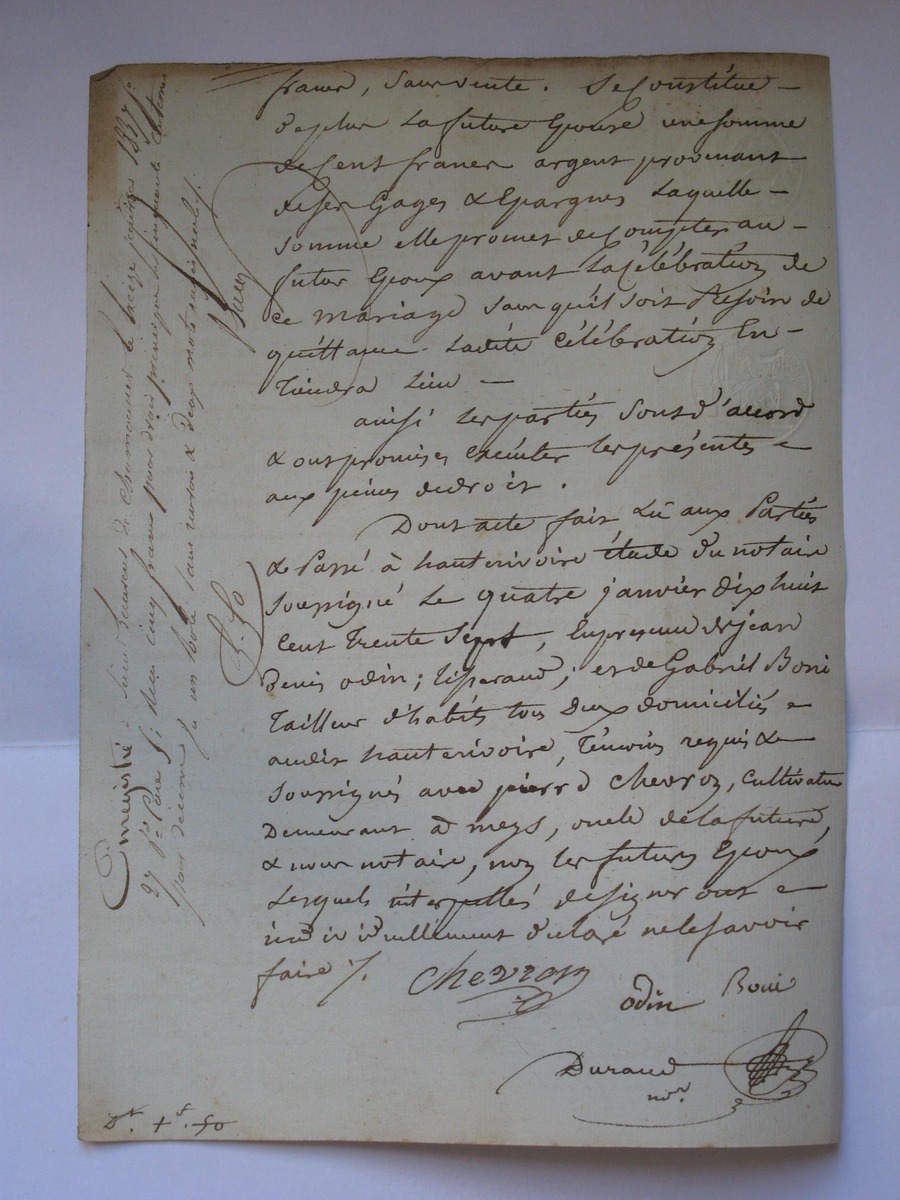 francs, Saur vente. Se Constitue
de plus La future Epouse une somme
de Cent francs argent provenant
de ses Gages & Epargnes Laquelle
somme elle promet de Compter au
futur Epoux avant La Célébration de
ce mariage sans qu'il soit Besoin de
quittance. Ladite Célébration En
Tiendra Lieu
ainsi les parties Sont d'accord
& ont promis et Exécuter les présentes
aux peines de droit.
Dont acte fait Lu aux Parties
& Passé à hauterivoire étude du notaire
Soussigné Le quatre janvier dix huit
Cent Trente Sept, En presence de jean
Denis odin; et de Gabriel Boni
Tailleur d'habits tous Deux domiciliés
audit hauterivoire, Témoins requis &
Soussignés avec pierre Chevron, Cultivateur
Demeurant à meys, oncle de la future,
& nous notaire, non les futurs Epoux
Lesquels interpellés de signer ont
individuellement déclaré ne le savoir
faire ./.
Chevron
odin Boni
Durand
nore.
Dt. 1f. 50
Enregistré à Chamousset le janvier 1837 fo.
27 Ro. Case 5; Reçu cinq francs pour droit principal & cinquante centimes
pour décime / un rôle sans renvoi & deux mots nuls /.